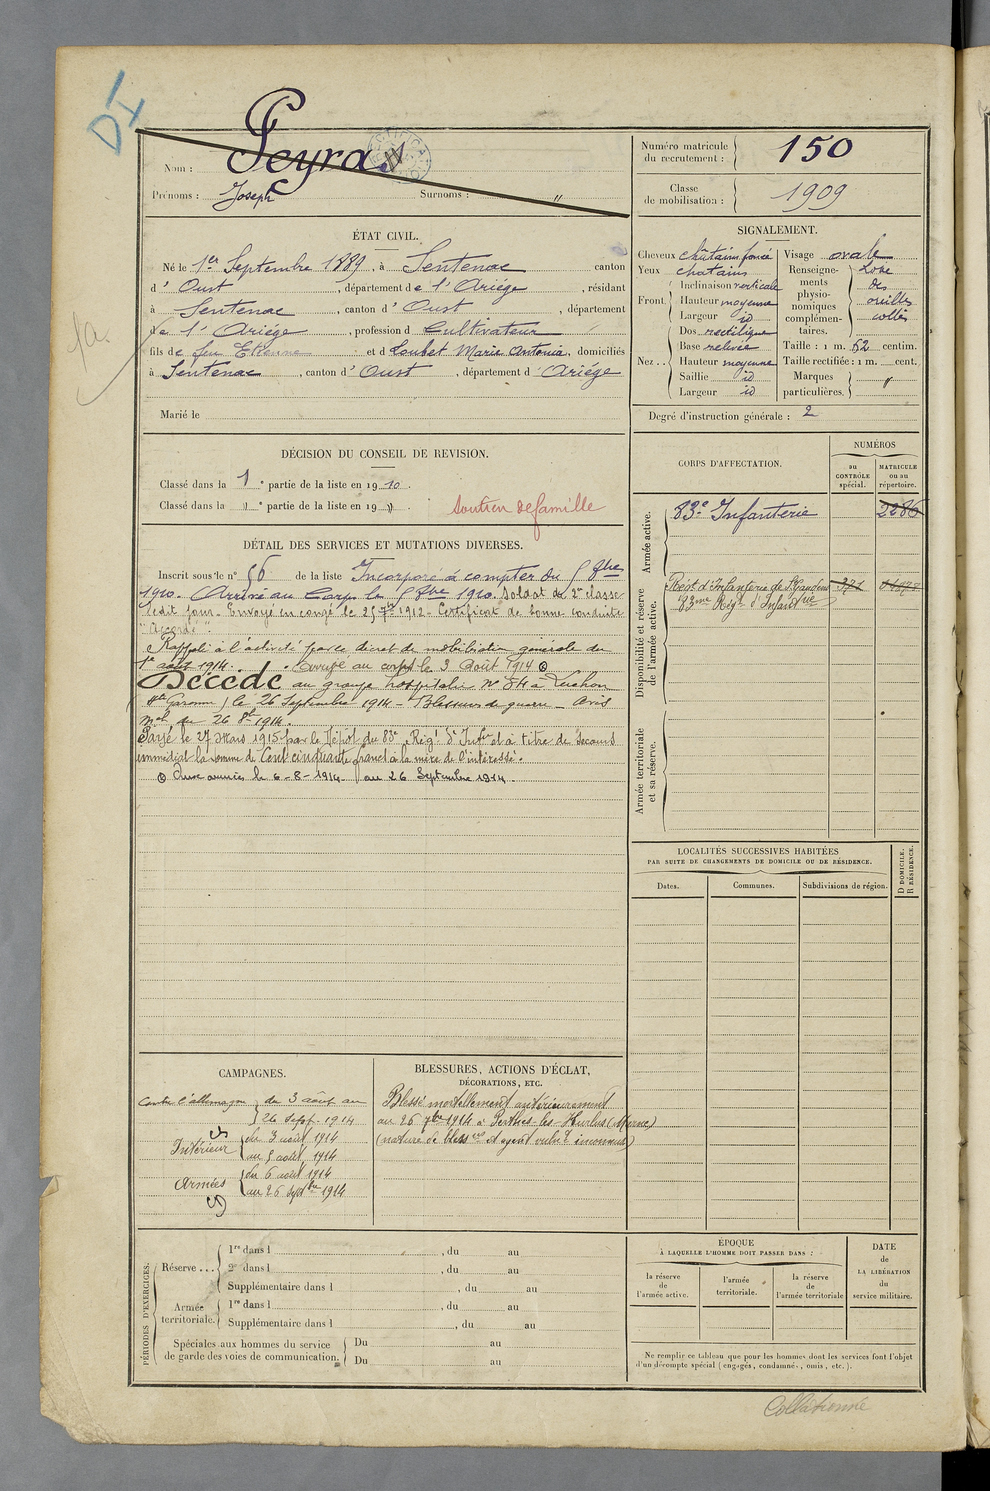 DI
Nom : Peyras
Prénoms : Joseph Surnoms : "
Numéro matricule du recrutement : 150
Classe de mobilisation : 1909
ÉTAT CIVIL.
Né le 1er Septembre 1889, à Sentenac canton
d'Oust, département de l'Ariège, résidant
à Sentenac, canton d'Oust, département
de l'Ariège, profession de Cultivateur
fils de feu Etienne et de Loubet Marie Antonia, domiciliés
à Sentenac, canton d'Oust, département d'Ariège
Marié le
SIGNALEMENT.
Cheveux châtains foncé
Yeux chatains
Front : Inclinaison verticale
Hauteur moyenne
Largeur id
Nez : Dos rectiligne
Base relevée
Hauteur moyenne
Saillie id
Largeur id
Visage ovale
Renseignements physionomiques complémentaires. Lobe des oreilles collés
Taille : 1 m. 62 centim.
Taille rectifiée : 1 m. cent.
Marques particulières. "
Degré d'instruction générale : 2
DÉCISION DU CONSEIL DE REVISION.
Classé dans la 1e partie de la liste en 1910.
Classé dans la " e partie de la liste en 19 "
Soutien de famille
DÉTAIL DES SERVICES ET MUTATIONS DIVERSES.
Inscrit sous le n° 56 de la liste Incorporé à compter du 5 8bre
1910. Arrivé au Corps le 5 8bre 1910. Soldat de 2e classe
ledit jour. Envoyé en congé le 25 7bre 1912. Certificat de bonne conduite
"Accordé".
Rappelé à l'activité par ce décret de mobilisation générale du
1er août 1914. Arrivé au corps le 3 Août 1914 ⊗
Décédé au groupe hospitalier N° 84 à Luchon
(Hte Garonne) le 26 Septembre 1914 - Blessures de guerre - Avis
mel du 26 8bre 1914.
Payé le 27 Mars 1915 par le Dépôt du 83e Régt d'Infie et à titre de secours
immédiat la somme de Cent cinquante francs à la mère de l'intéressé.
⊗ Aux armées le 6-8-1914 au 26 Septembre 1914.
CORPS D'AFFECTATION.
NUMÉROS
au CONTRÔLE spécial.
MATRICULE ou au répertoire.
Armée active.
83e Infanterie 2286
Disponibilité et réserve de l'armée active.
Régt d'Infanterie de St Gaudens 371
83me Régt d'Infanterie
Armée territoriale et sa réserve.
LOCALITÉS SUCCESSIVES HABITÉES
PAR SUITE DE CHANGEMENTS DE DOMICILE OU DE RÉSIDENCE.
Dates. Communes. Subdivisions de région. D DOMICILE. R RÉSIDENCE.
CAMPAGNES.
Contre l'allemagne du 3 août au
26 sept. 1914
Intérieur du 3 août 1914
au 5 août 1914
Armées du 6 août 1914
au 26 Septbre 1914
BLESSURES, ACTIONS D'ÉCLAT,
DÉCORATIONS, ETC.
Blessé mortellement antérieurement
au 26 7bre 1914 à Perthes-les-Hurlus (Marne)
(nature de bless res et agent vulnt inconnus)
PÉRIODES D'EXERCICES.
Réserve ... 1re dans l , du au
2e dans l , du au
Supplémentaire dans l , du au
Armée territoriale. 1re dans l , du au
Supplémentaire dans l , du au
Spéciales aux hommes du service de garde des voies de communication. Du au
Du au
ÉPOQUE
À LAQUELLE L'HOMME DOIT PASSER DANS :
la réserve de l'armée active.
l'armée territoriale.
la réserve de l'armée territoriale
DATE de LA LIBÉRATION du service militaire.
Ne remplir ce tableau que pour les hommes dont les services font l'objet
d'un décompte spécial (engagés, condamnés, omis, etc.).
Collationné